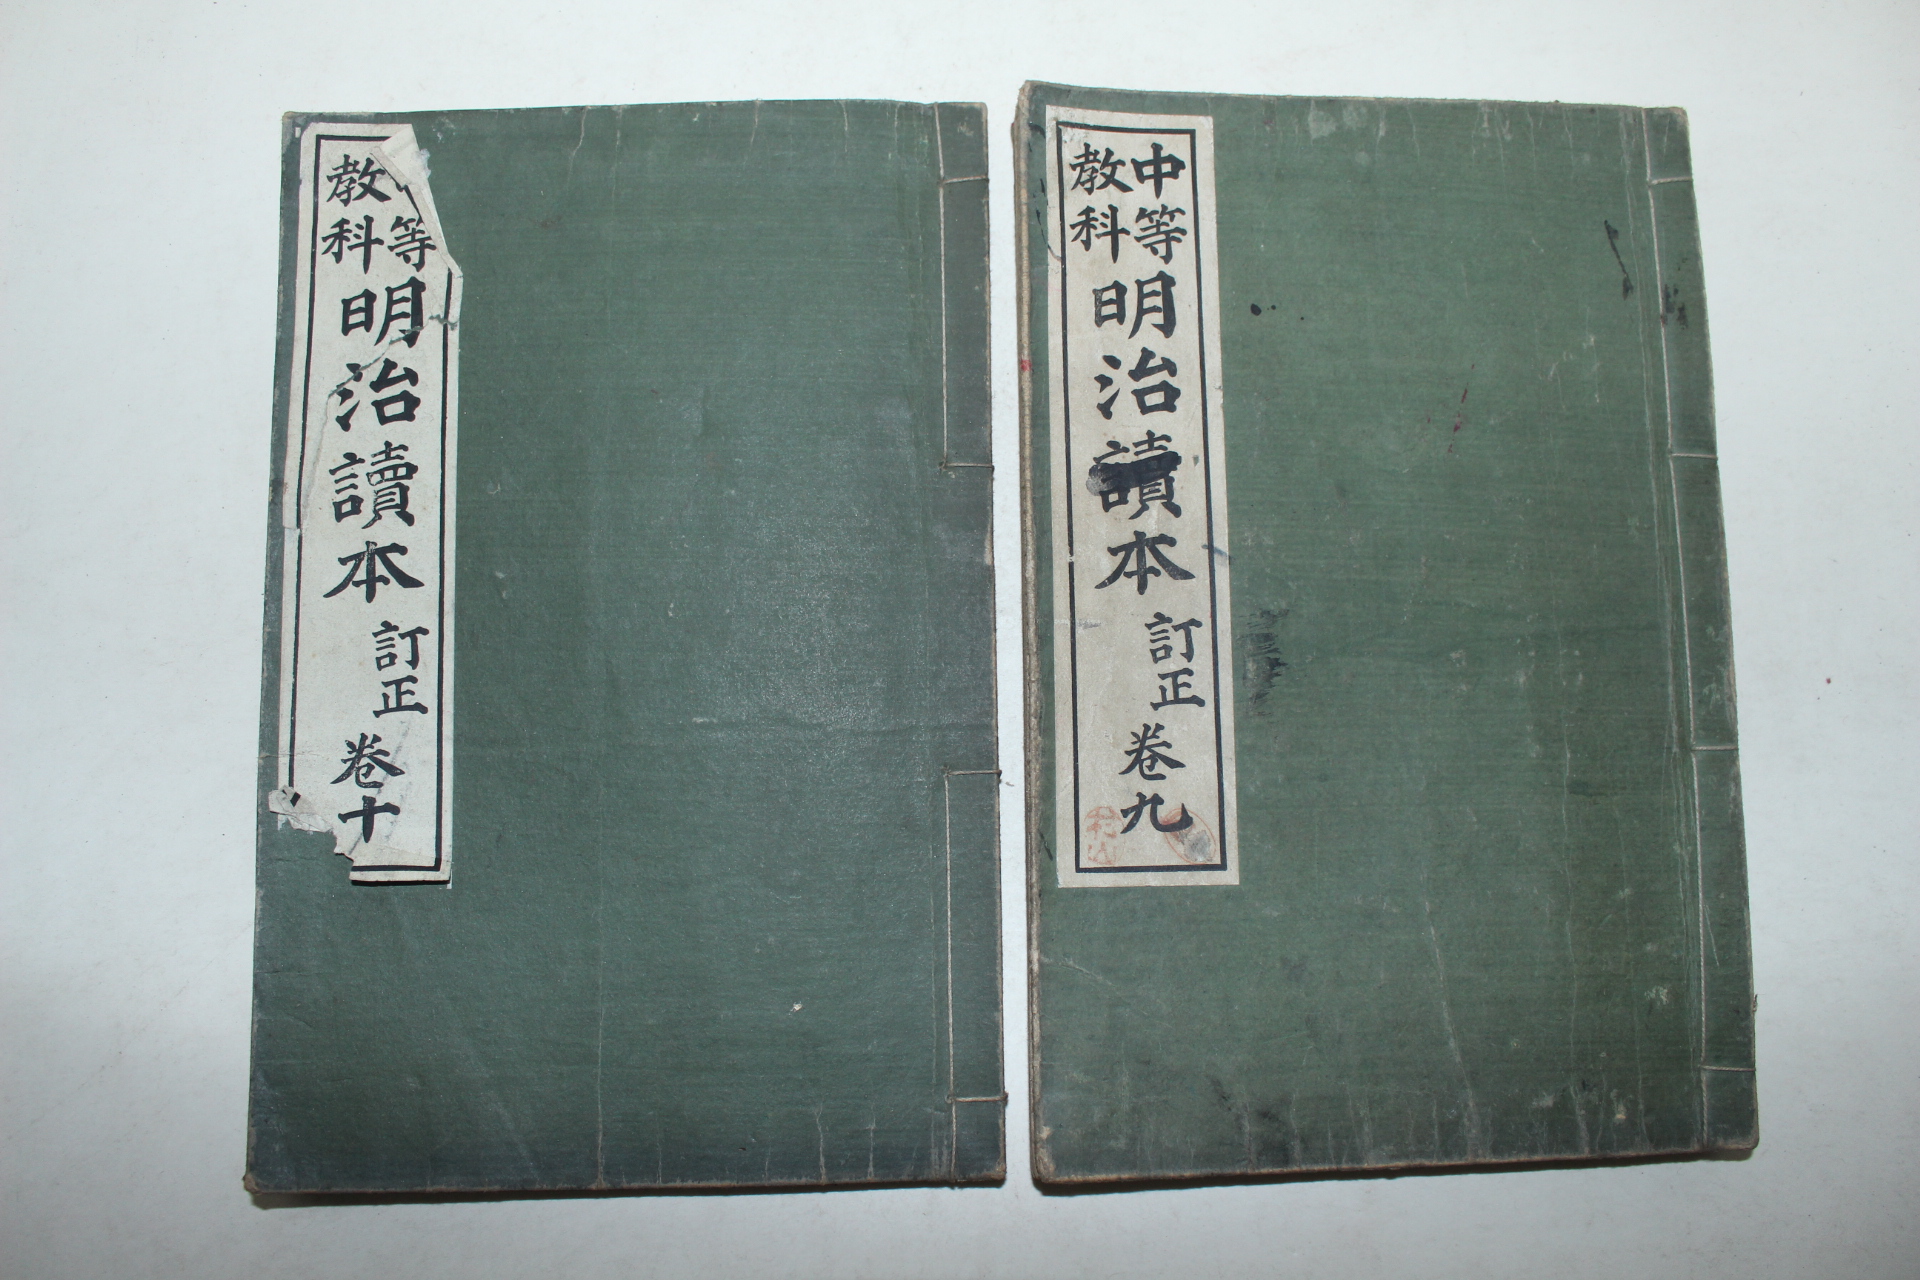 中等
教科
明治讀本
訂正
卷九
等
教科
明治讀本
訂正
卷十